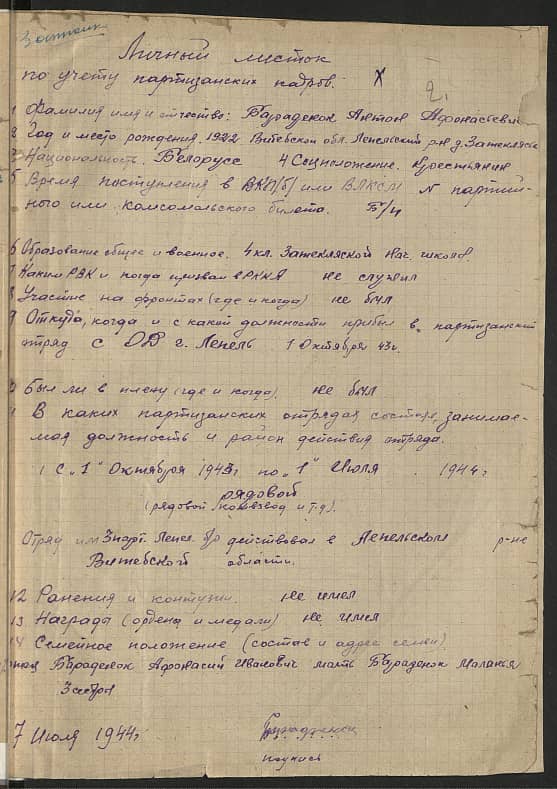 Личный листок
по учету партизанских кадров. X
2.
1 Фамилия имя и отчество: Бараденок Антон Афонасьевич
2 Год и место рождения. 1922 Витебской обл. Лепельский р-н д.
3 Национолность. Белорусс 4 Соцположение. Крестьянин
5 Время поступления в ВКП/б/ или ВЛКСМ N партий-
ного или комсомольского билета. Б/п
6 Образование общее и военное. 4 кл. нач. школы
7 Каким РВК и когда призван в РККА не служил
8 Участие на фронтах (где и когда) не был
9 Откуда, когда и с какой должности прибыл в партизанский
отряд с г. Лепель 1 Октября 43 г.
Был ли в плену (где и когда). не был
В каких партизанских отрядах состоял, занимае-
мая должность и район действия отряда.
С "1" Октября 1943 г по "1" Июля 1944 г
рядовой
(рядовой, комвзвод и т.д).
Отряд им Лепел. бр действовал в Лепельском р-не
Витебской области.
12 Ранения и контузии. не имел
13 Награда (ордена и медали) не имел
14 Семейное положение (состав и адрес семьи).
отец Бараденок Афонасий Иванович мать Бараденок Маланья
3 сестры
7 Июля 1944 г.
Барадзенок
подпись